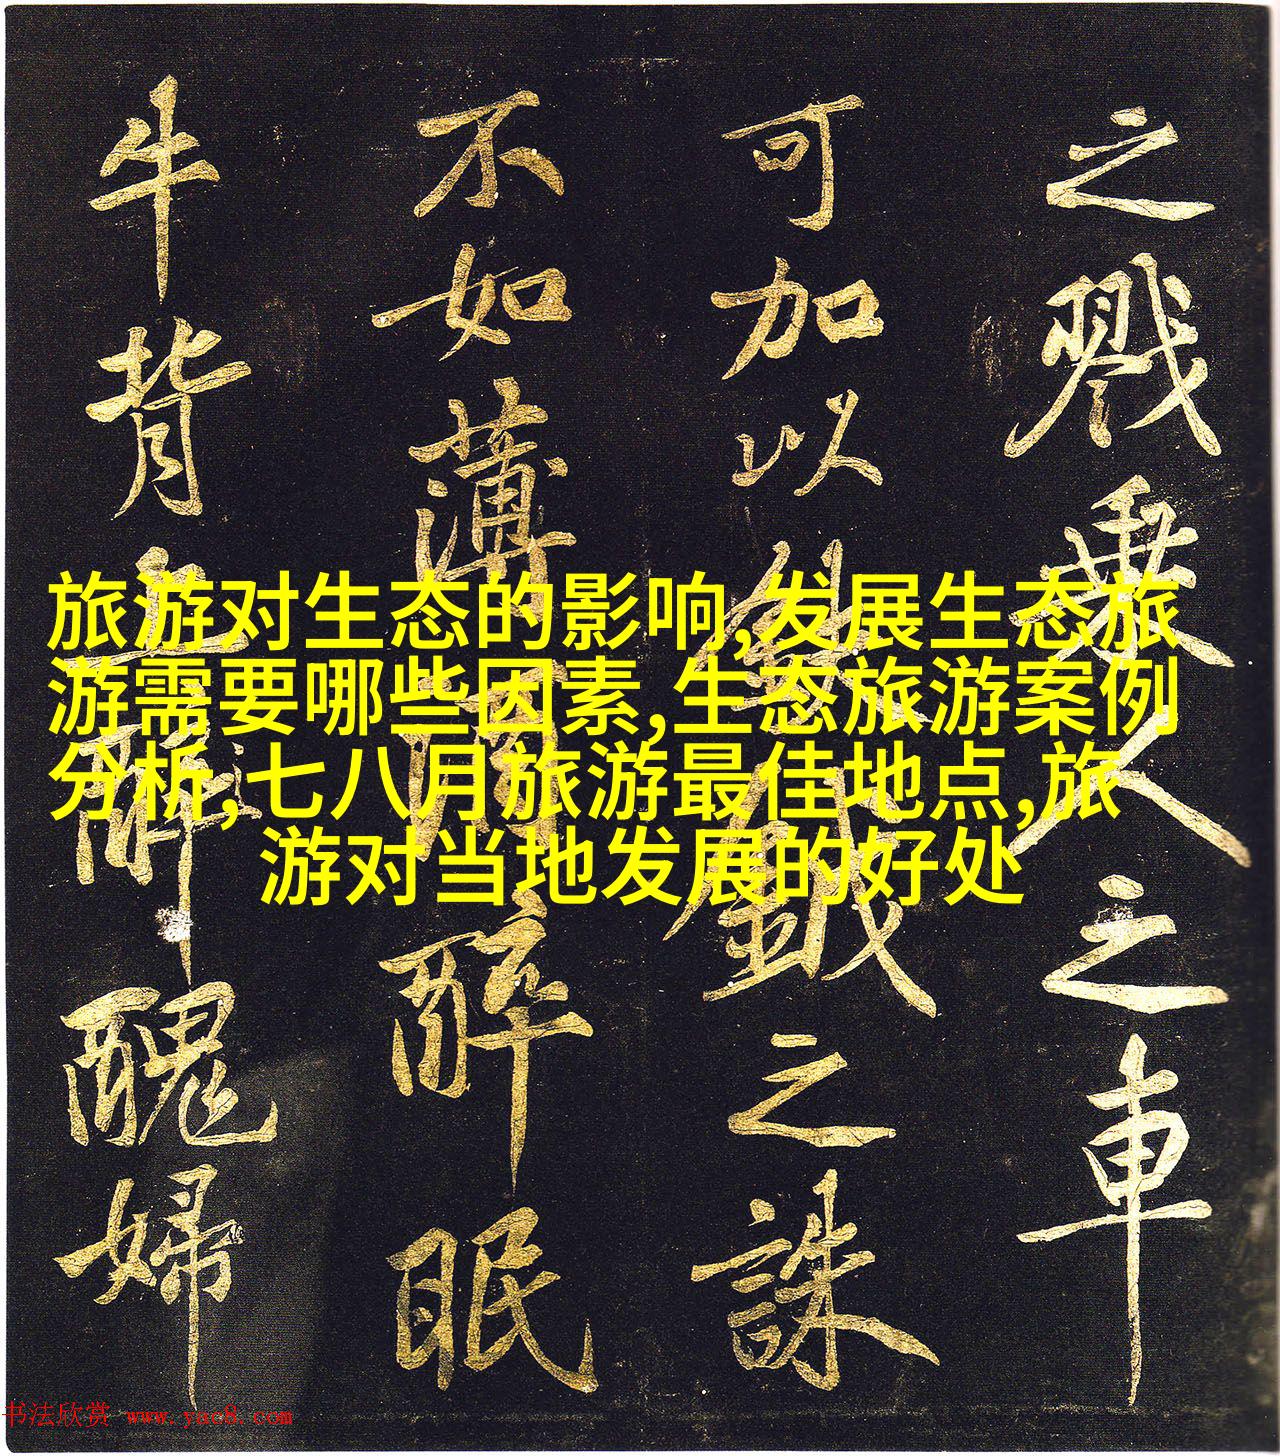 之戮乘人之車
可加以鉞之誅
不如薄酒醉眠
牛背上醜婦
旅游对生态的影响,发展生态旅
游需要哪些因素,生态旅游案例
分析,七八月旅游最佳地点,旅
游对当地发展的好处
书法欣赏 www.yac8.com